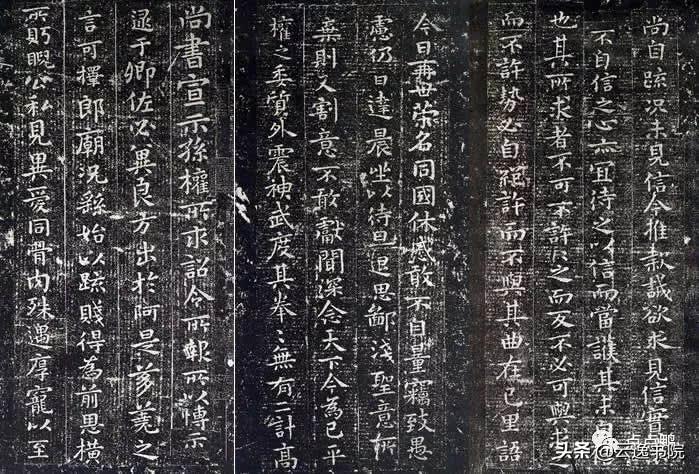 尚書宣示孫權所求詔令所報所以博示
逮于卿佐必冀良方出於阿是芻蕘之
言可擇郎廟況繇始以疏賤得為前恩橫
所盼睨公私見異愛同骨肉殊遇厚寵以至
今日再世榮名同國休慼敢不自量竊致愚
慮仍日達晨坐以待旦退思鄙淺聖意所
棄則又割意不敢獻聞深念天下今為已平
權之委質外震神武度其拳〻無有二計高
尚自疏況未見信今推款誠欲求見信實
不自信之心亦宜待之以信而當護其未自
也其所求者不可不許〻之而反不必可與求之
而不許勢必自絕許而不與其曲在己里語
头条@云逸书院